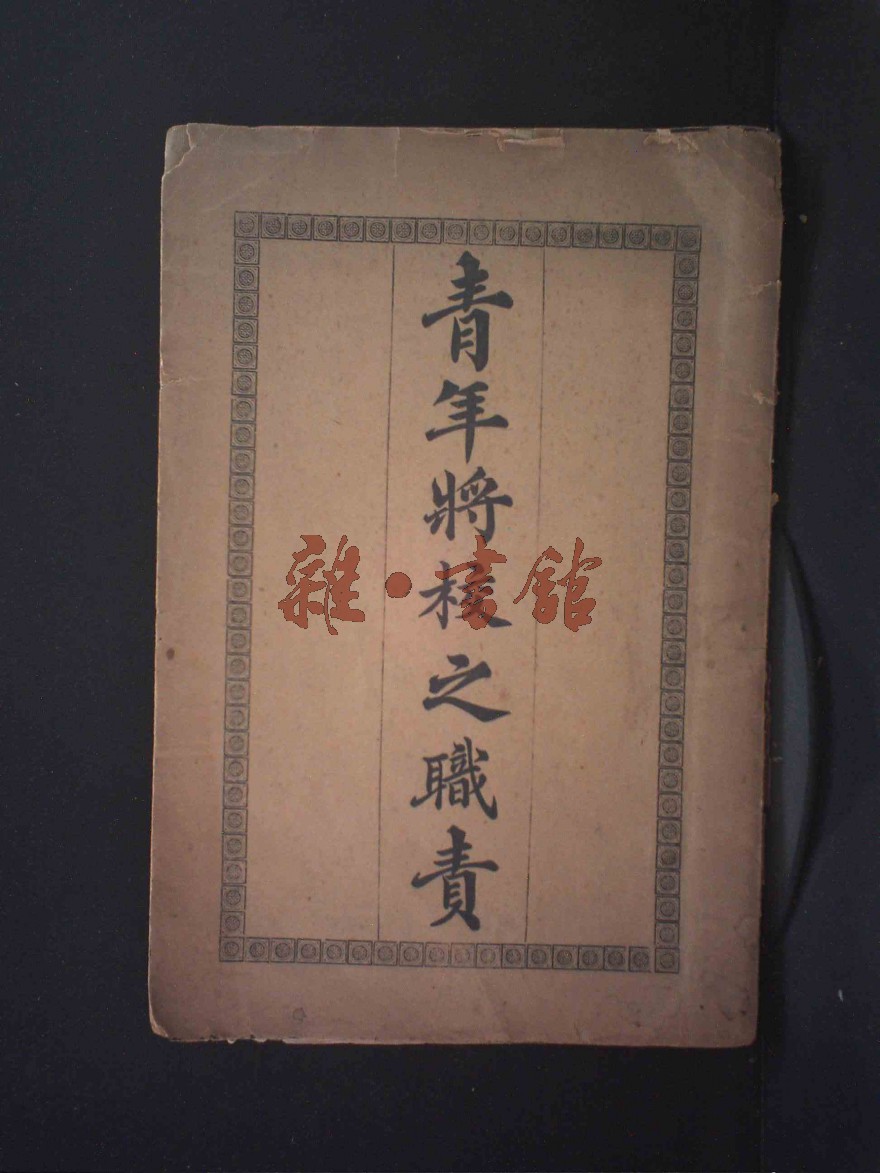 青年將校之職責
雜·書館